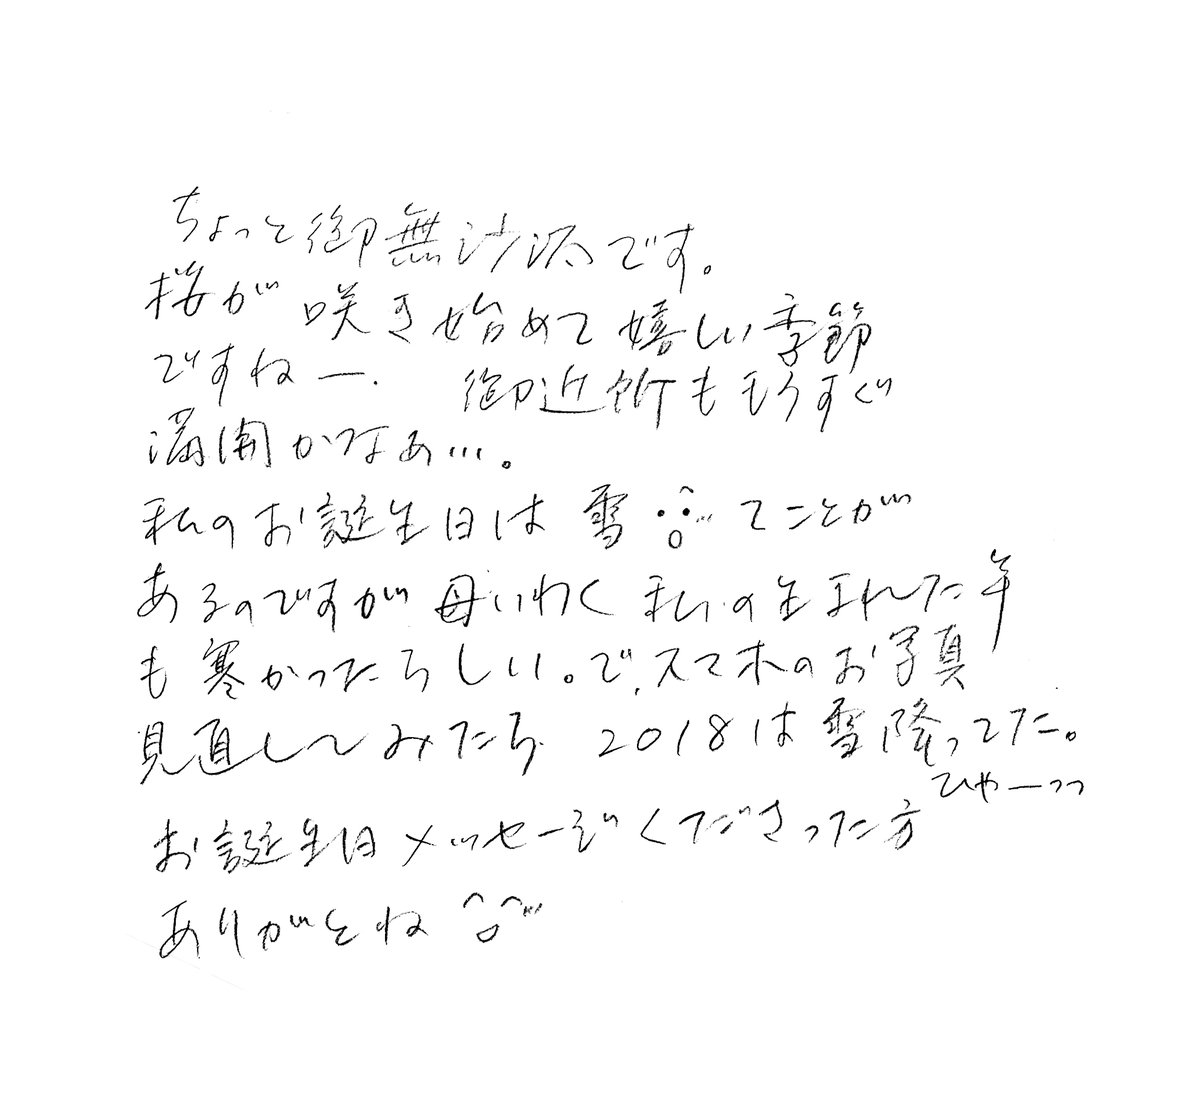 ちょっと御無沙汰です。
桜が咲き始めて嬉しい季節
ですねー. 御近所ももうすぐ
満開かなぁ…。
私のお誕生日は雪 てことが
あるのですが母いわく私の生まれた年
も寒かったらしい。で,スマホのお写真
見直してみたら 2018は雪降ってた。
ひやーっっ
お誕生日メッセージくださった方
ありがとね